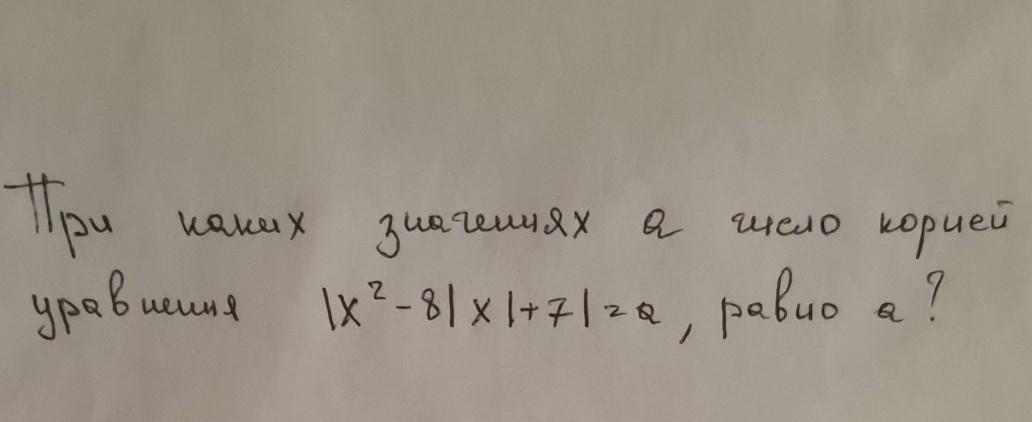 При каких значениях a число корней
уравнения |x²-8|x|+7|=a, равно a?